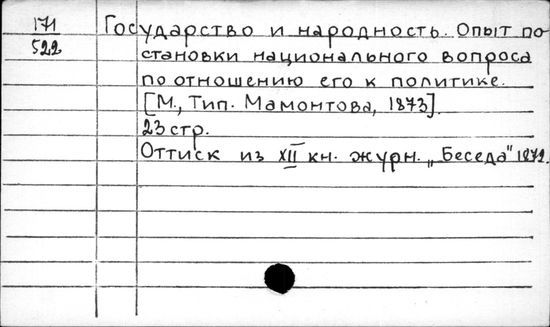 171
522
Государство и народность. Опыт по
становки национального вопроса
по отношению его к политике.
[М., Тип. Мамонтова, 1873].
23 стр.
Оттиск из XII кн. журн. „Беседа" 1872.